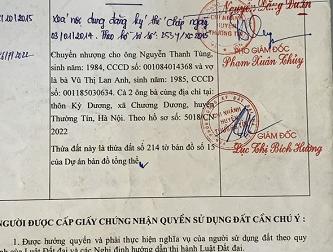 Xoá nội dung đăng ký thế chấp ngày
03/01/2014. Theo hồ sơ số
Chuyển nhượng cho ông Nguyễn Thanh Tùng,
sinh năm: 1984, CCCD số: 001084014368 và vợ
là bà Vũ Thị Lan Anh, sinh năm: 1985, CCCD
số: 001185030634. Cả 2 ông bà cùng địa chỉ tại:
thôn Kỳ Dương, xã Chương Dương, huyện
Thường Tín, Hà Nội. Theo hồ sơ số: 5018/CN
2022
Thửa đất này là thửa đất số 214 tờ bản đồ số 15
của Dự án bản đồ tổng thể.
PHÓ GIÁM ĐỐC
Phạm Xuân Thủy
GIÁM ĐỐC
Lục Thị Bích Hường
NGƯỜI ĐƯỢC CẤP GIẤY CHỨNG NHẬN QUYỀN SỬ DỤNG ĐẤT CẦN CHÚ Ý :
1. Được hưởng quyền và phải thực hiện nghĩa vụ của người sử dụng đất theo quy
của Luật Đất đai và các Nghị định hướng dẫn thi hành Luật Đất đai.